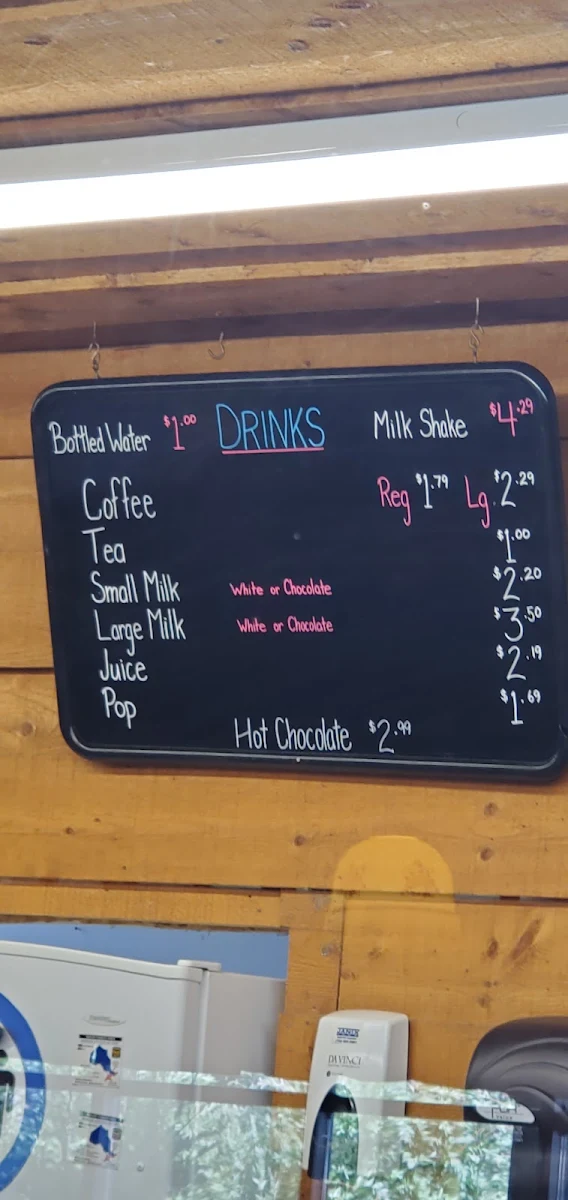 Bottled Water $1.00 DRINKS Milk Shake $4.29
Coffee Reg $1.79 Lg. $2.29
Tea $1.00
Small Milk White or Chocolate $2.20
Large Milk White or Chocolate $3.50
Juice $2.19
Pop $1.69
Hot Chocolate $2.99
DAVINCI